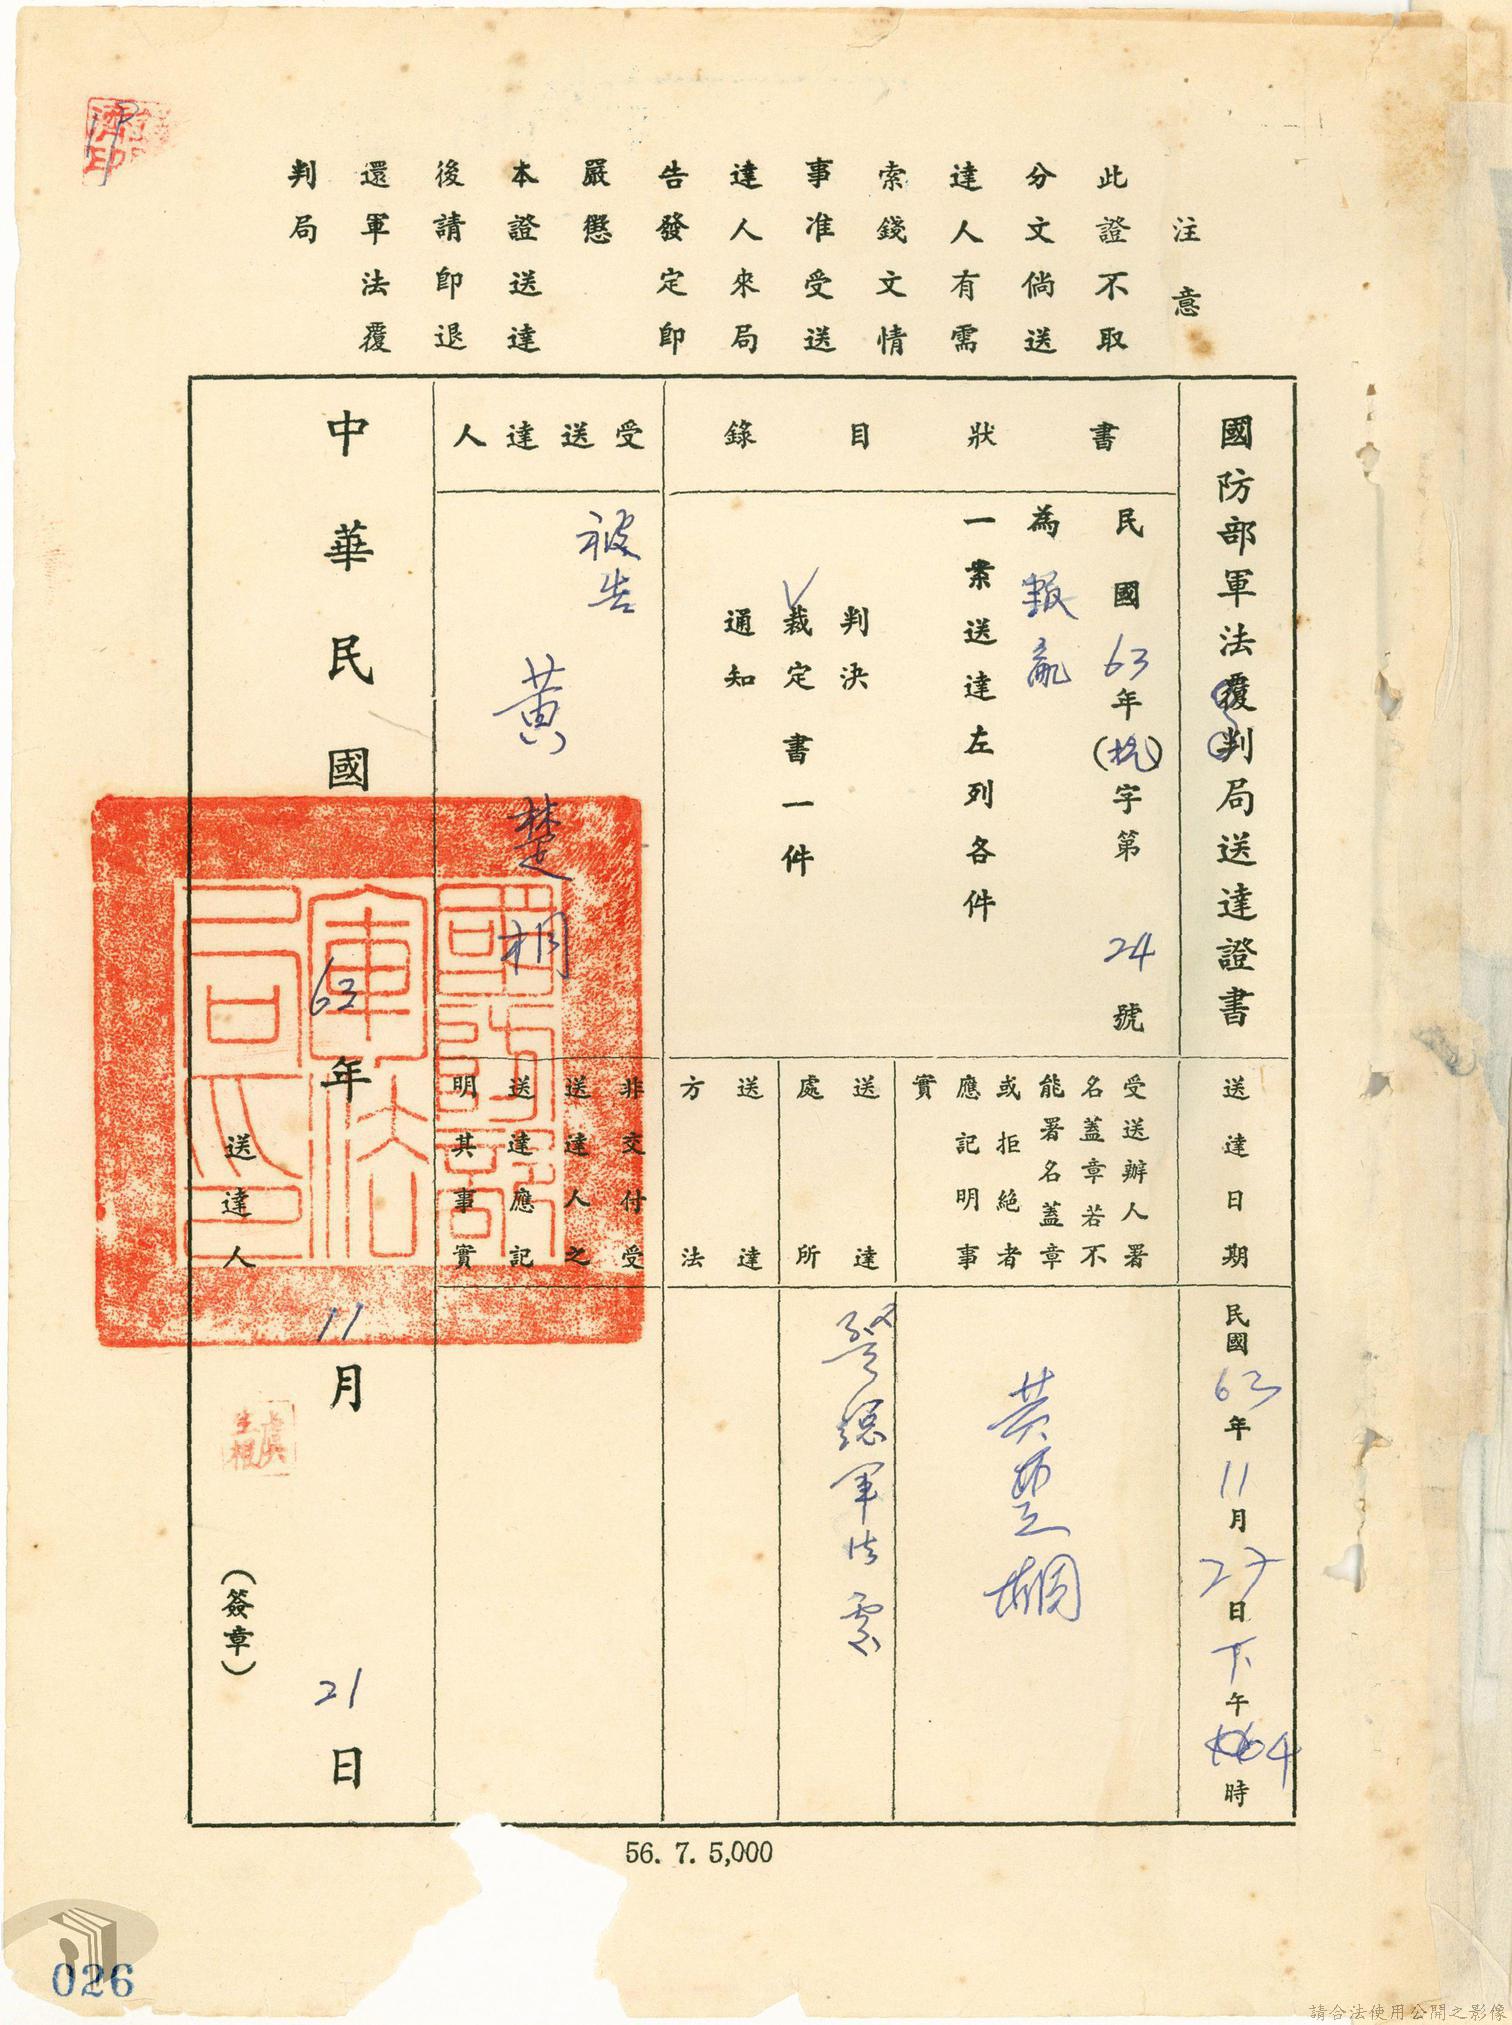 注意
此證不取
分文倘送
達人有需
索錢文情
事准受送
達人來局
告發定即
嚴懲
本證送達
後請即退
還軍法覆
判局
國防部軍法覆判局送達證書
書狀目錄
民國63年(抗)字第24號
為叛亂
一案送達左列各件
判決
裁定書一件
通知
受送達人
被告
黃楚桐
送達日期
民國63年11月27日下午4時
受送辦人署
名蓋章若不
能署名蓋章
或拒絕者
應記明事
實
黃楚桐
送達
處所
警總軍法處
送達
方法
非交付受
送達人之
送達應記
明其事實
中華民國63年11月21日
送達人
(簽章)
國防部
軍法
司之印
56. 7. 5,000
026
請合法使用公開之影像